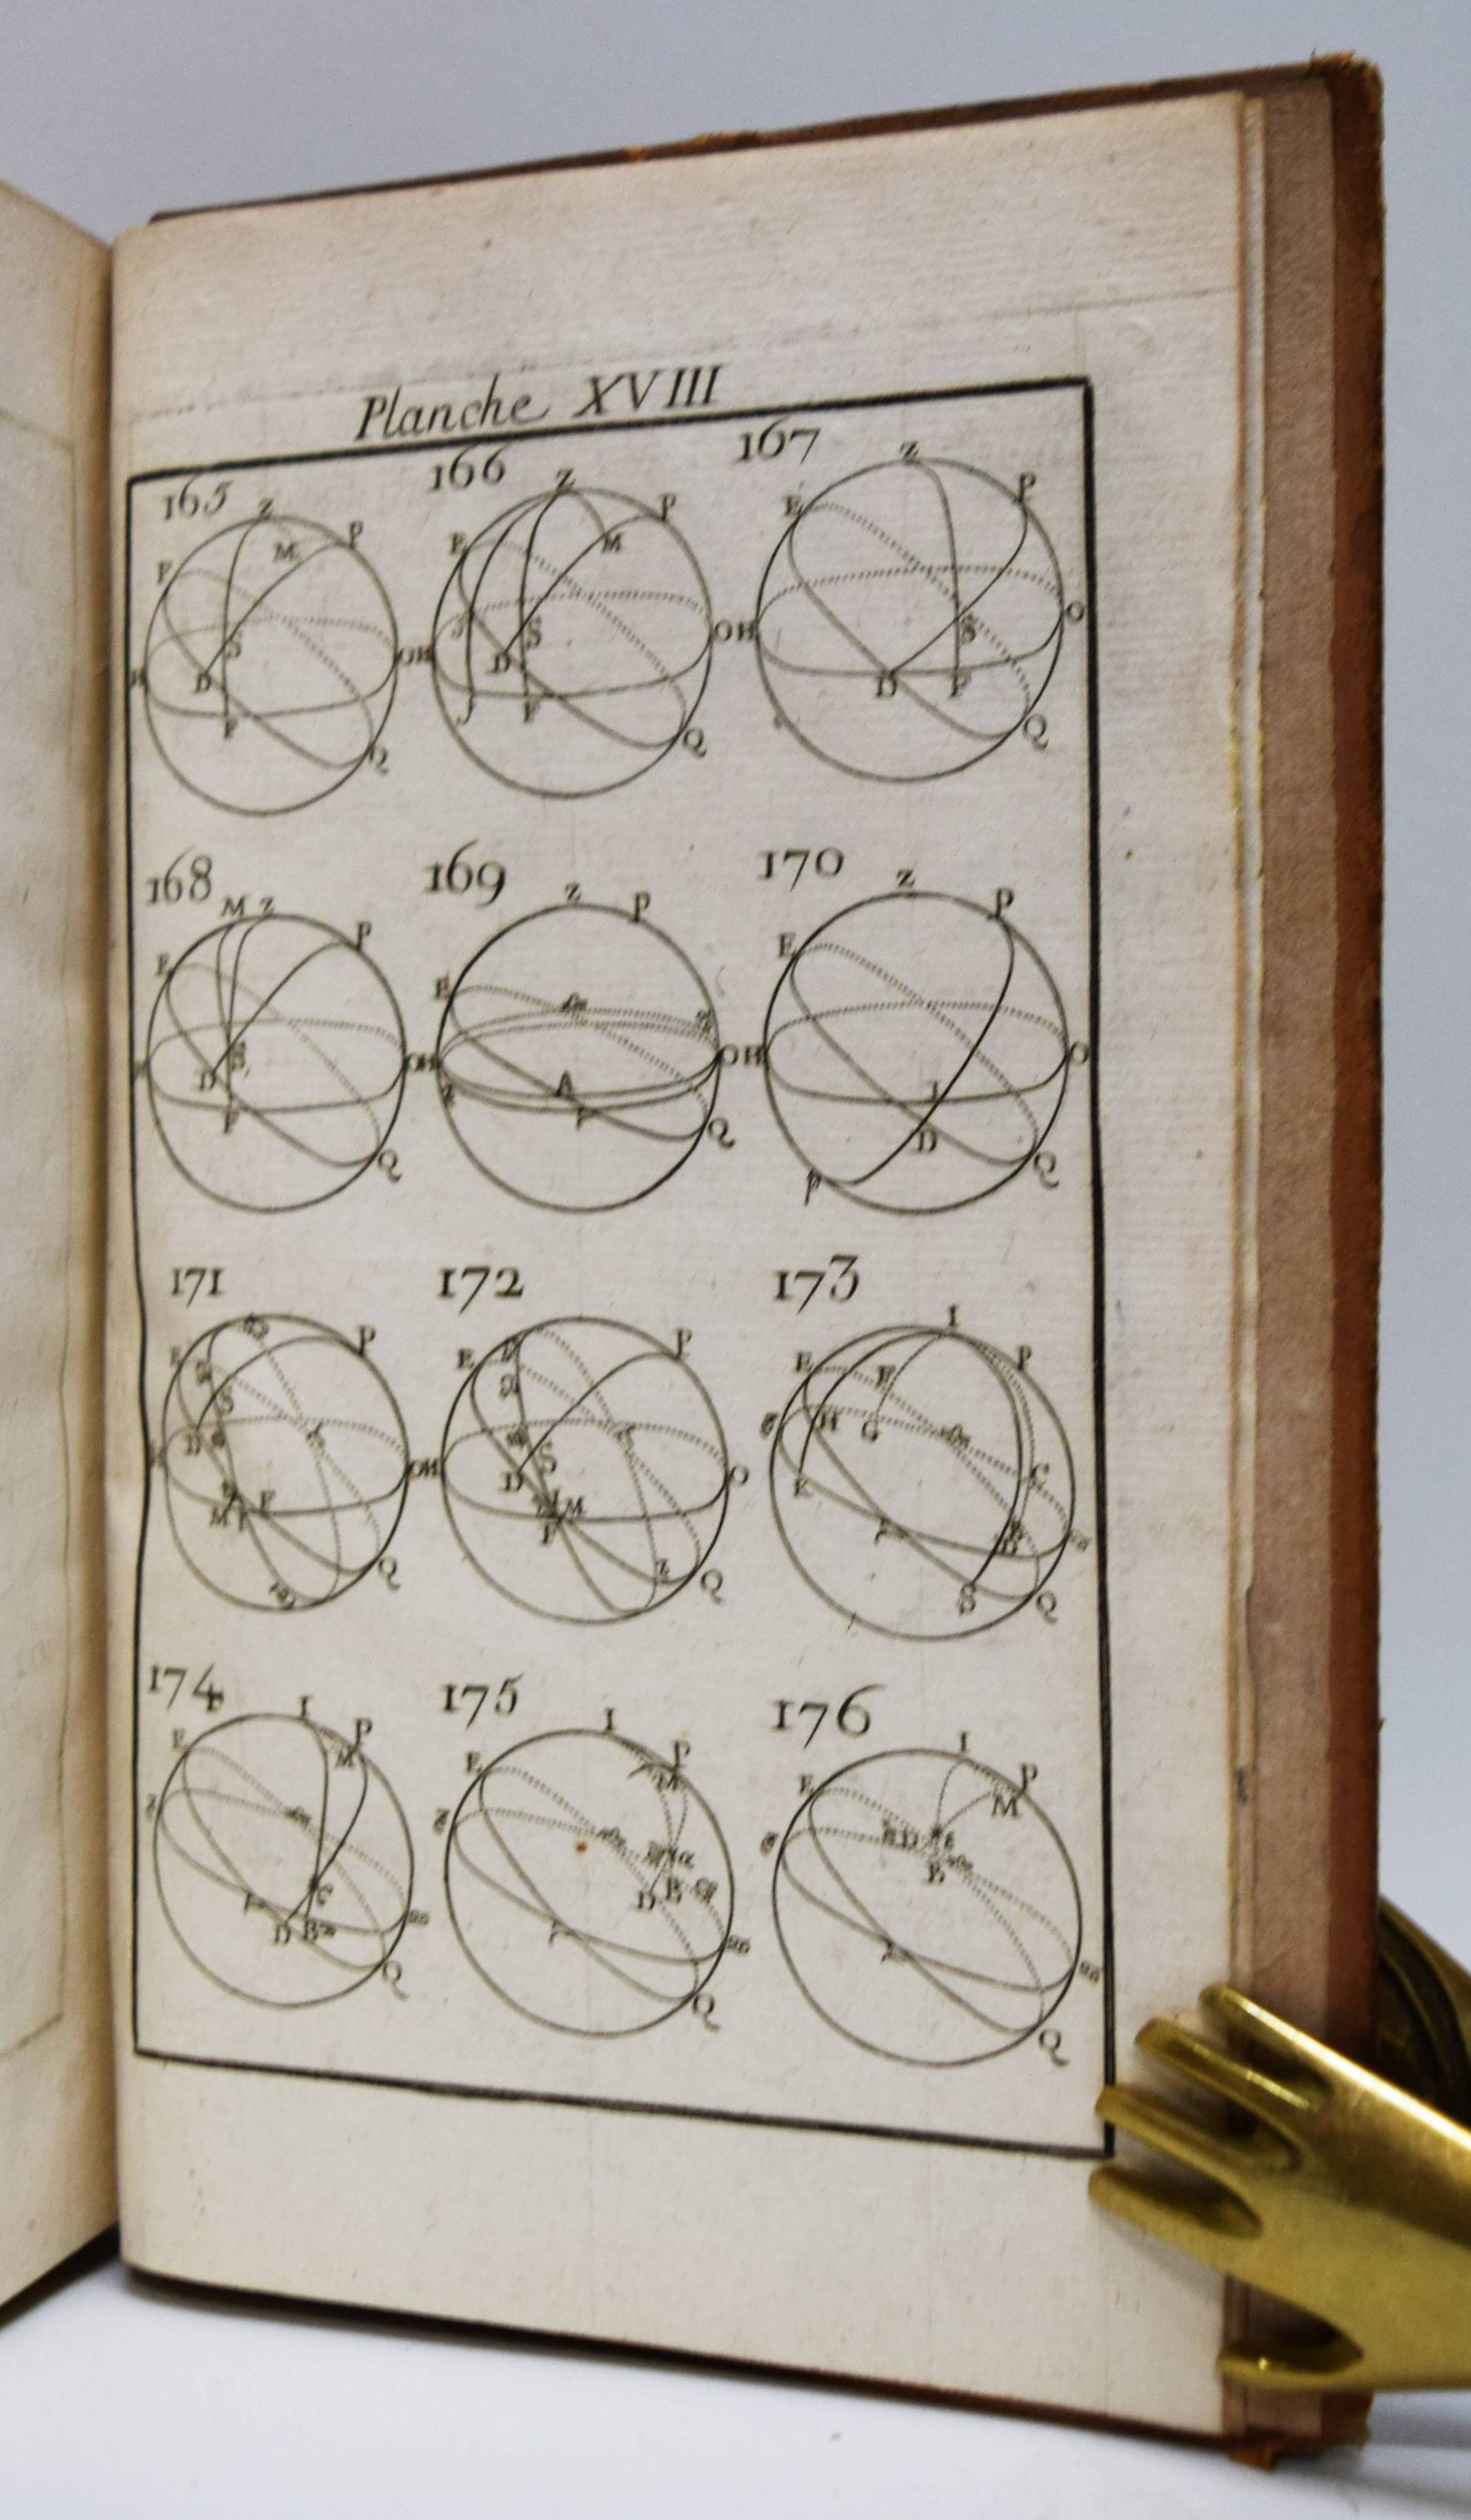 Planche XVIII
165 166 167
Z Z Z
P P P
M M
E E E
S S S
D D D
H O H O H O
F F F
Q Q Q
168 169 170
M Z Z Z
P P P
E E E
D A I
O H O H O
F D
Q Q Q
P
171 172 173
I
P P P
E E E F
S S H G
D D C
O H O E
F M B
M S
Q Q Q
174 175 176
I I I
P P P
M M M
E E E
C D
D B D B B
Q Q Q